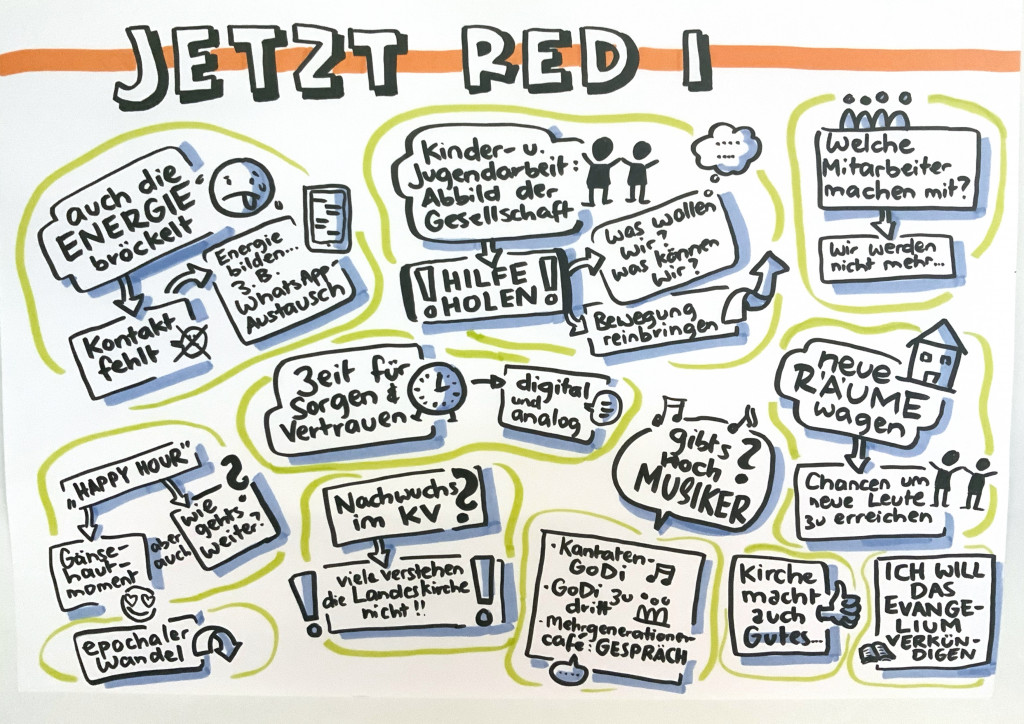 JETZT RED I
auch die
ENERGIE
bröckelt
Kontakt
fehlt
Energie
bilden...
z.B.
WhatsApp
Austausch
Kinder- u.
Jugendarbeit:
Abbild der
Gesellschaft
!HILFE
HOLEN!
Was wollen
wir?
was können
wir?
Bewegung
reinbringen
Welche
Mitarbeiter
machen mit?
Wir werden
nicht mehr...
Zeit für
Sorgen &
Vertrauen
digital
und
analog
gibt's
noch
MUSIKER?
neue
RÄUME
wagen
Chancen um
neue Leute
zu erreichen
„HAPPY HOUR"
Gänse-
haut-
moment
aber
auch
wie
gehts
weiter?
?
epochaler
Wandel
Nachwuchs
im KV?
! viele verstehen
die Landeskirche
nicht!! !
· Kantaten-
GoDi
· GoDi zu
dritt
· Mehrgenerationen-
café: GESPRÄCH
Kirche
macht
auch
Gutes...
ICH WILL
DAS
EVANGE-
LIUM
VERKÜN-
DIGEN